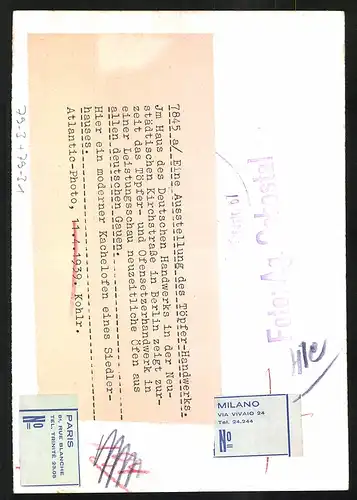 7845 a/ Eine Ausstellung des Töpfer-Handwerks.
Jm Haus des Deutschen Handwerks in der Neu-
städtischen Kirchstraße in Berlin zeigt zur-
zeit das Töpfer-und Ofensetzerhandwerk in
einer Leistungsschau neuzeitliche Öfen aus
allen deutschen Gauen.
Hier ein moderner Kachelofen eines Siedler-
hauses.
Atlantic-Photo, 11.4.1939. Kohlr.
PARIS
RUE BLANCHE
TEL. TRINITÉ
No
MILANO
VIA VIVAIO 24
Tel. 24.244
No